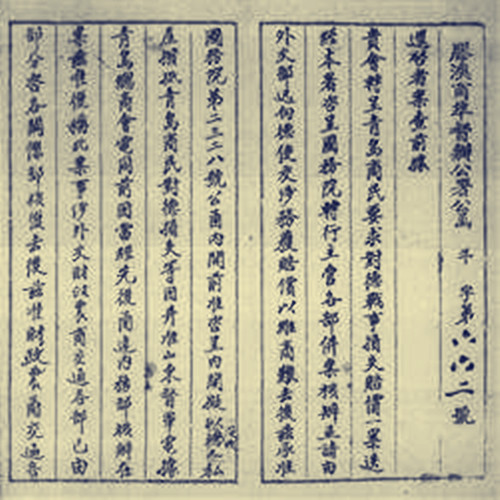 膠澳商埠督辦公署公函 字第六六二號
逕啟者案查前據
貴會轉呈青島商民要求對德戰事損失賠償一案迭
經本署咨呈國務院轉行主管各部併案核辦並請由
外交部迅向德使交涉務獲賠償以維商艱去後茲承准
國務院第二三二八號公函內開前准咨呈內開擬
據青島商民對德損失等因並准山東督軍電據
青島總商會電同前因當經先後函達內務部核辦在
案茲准復稱此案事涉外交財政農商交通各部已由
部分咨各關係部核復去後茲准財政農商交通各